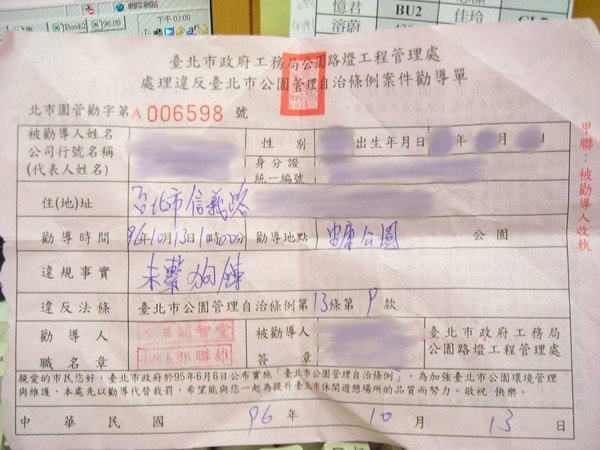 下午 03:08
Book2
96.08
憶君
BU2
佳玲
溶蔚
臺北市政府工務局公園路燈工程管理處
處理違反臺北市公園管理自治條例案件勸導單
北市園管勸字第A 006598 號
被勸導人姓名
公司行號名稱
(代表人姓名)
性別
出生年月日 年 月 日
身分證
統一編號
住(地)址
台北市信義路
勸導時間 96年10月13日1時00分 勸導地點 公園
違規事實 未繫狗鍊
違反法條 臺北市公園管理自治條例第13條第9款
勸導人
職名章
被勸導人
簽章
臺北市政府工務局
公園路燈工程管理處
親愛的市民您好,臺北市政府於95年6月6日公布實施「臺北市公園管理自治條例」。為加強臺北市公園環境管理
與維護,本處先以勸導代替裁罰,希望能與您一起為提升臺北市休閒遊憩場所的品質而努力。敬祝 快樂。
中華民國 96 年 10 月 13 日
甲聯:被勸導人收執